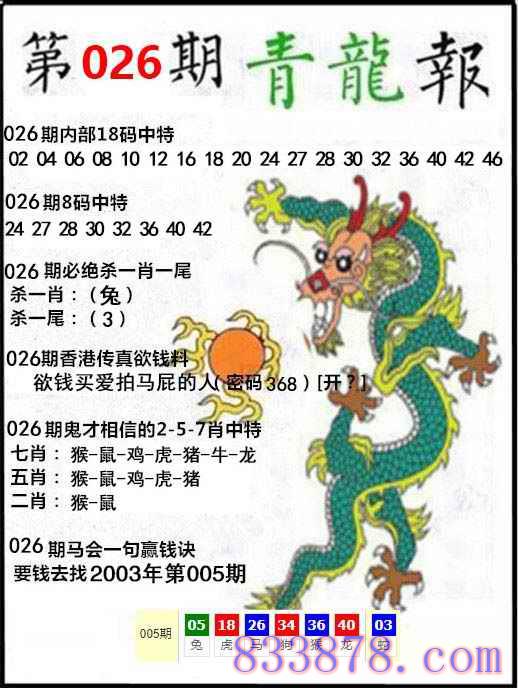 第026期青龍報
026期内部18码中特
02 04 06 08 10 12 16 18 20 24 27 28 30 32 36 40 42 46
026期8码中特
24 27 28 30 32 36 40 42
026期必绝杀一肖一尾
杀一肖：（兔）
杀一尾：（3）
026期香港传真欲钱料
欲钱买爱拍马屁的人（密码368）[开？]
026期鬼才相信的2-5-7肖中特
七肖：猴-鼠-鸡-虎-猪-牛-龙
五肖：猴-鼠-鸡-虎-猪
二肖：猴-鼠
026期马会一句赢钱诀
要钱去找2003年第005期
005期 05 18 26 34 36 40 03
兔 虎 马 狗 猴 龙 蛇
833878.com